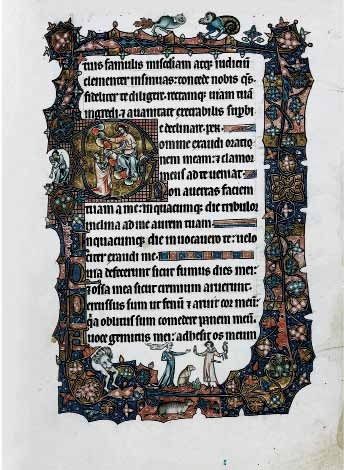 tuis famulis misediam atq; iudiciū
clementer insinuas: concede nobis qs
fideliter te diligere. rectamq; uiam tuā
ingredi & auanitate
te declinare. per.
omine exaudi oratio
nem meam: & clamor
meus ad te ueniat.
on auertas faciem
tuam a me: in quacumq; die tribulor
inclina ad me aurem tuam.
In quacumq; die inuocauero te: uelo
citer exaudi me.
uia defecerunt sicut fumus dies mei:
& ossa mea sicut cremium aruerunt.
ercussus sum ut fenū & aruit cor meū:
qa oblitus sum comedere panem meū.
uoce gemitus mei: adhesit os meum